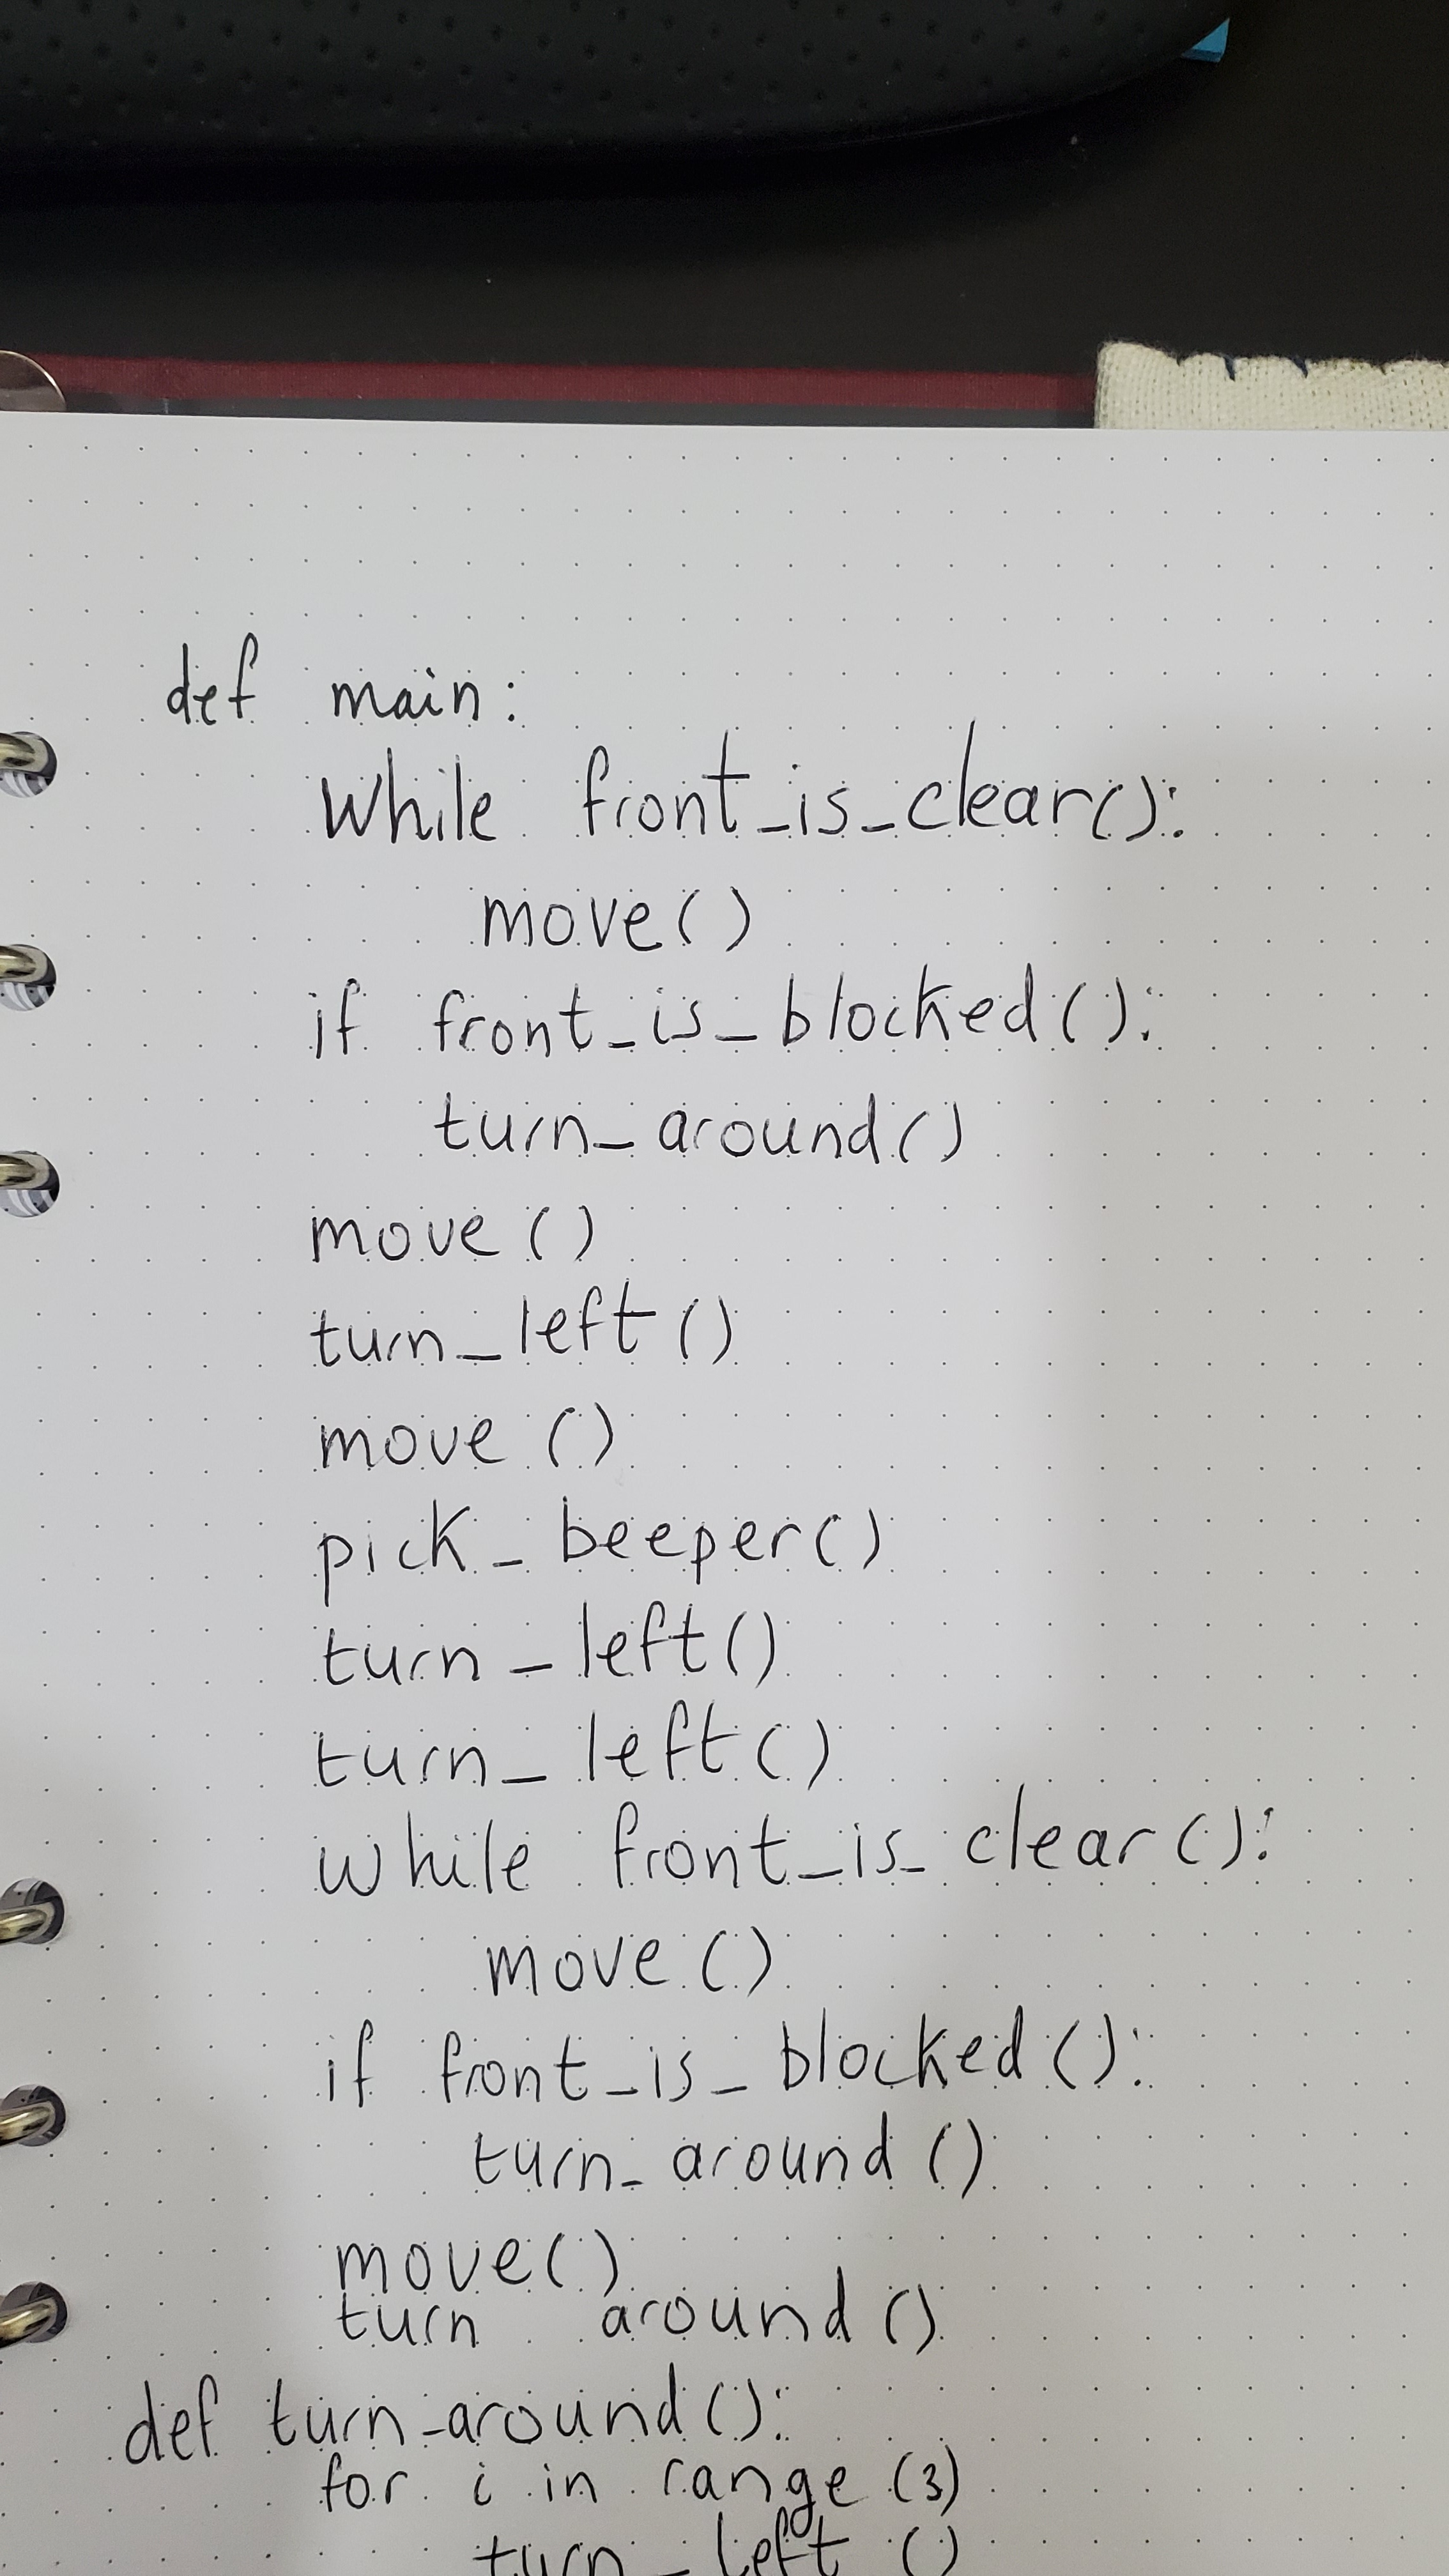 def main:
while front_is_clear():
move()
if front_is_blocked():
turn_around()
move()
turn_left()
move()
pick_beeper()
turn_left()
turn_left()
while front_is_clear():
move()
if front_is_blocked():
turn_around()
move()
turn around()
def turn_around():
for i in range(3)
turn_left()